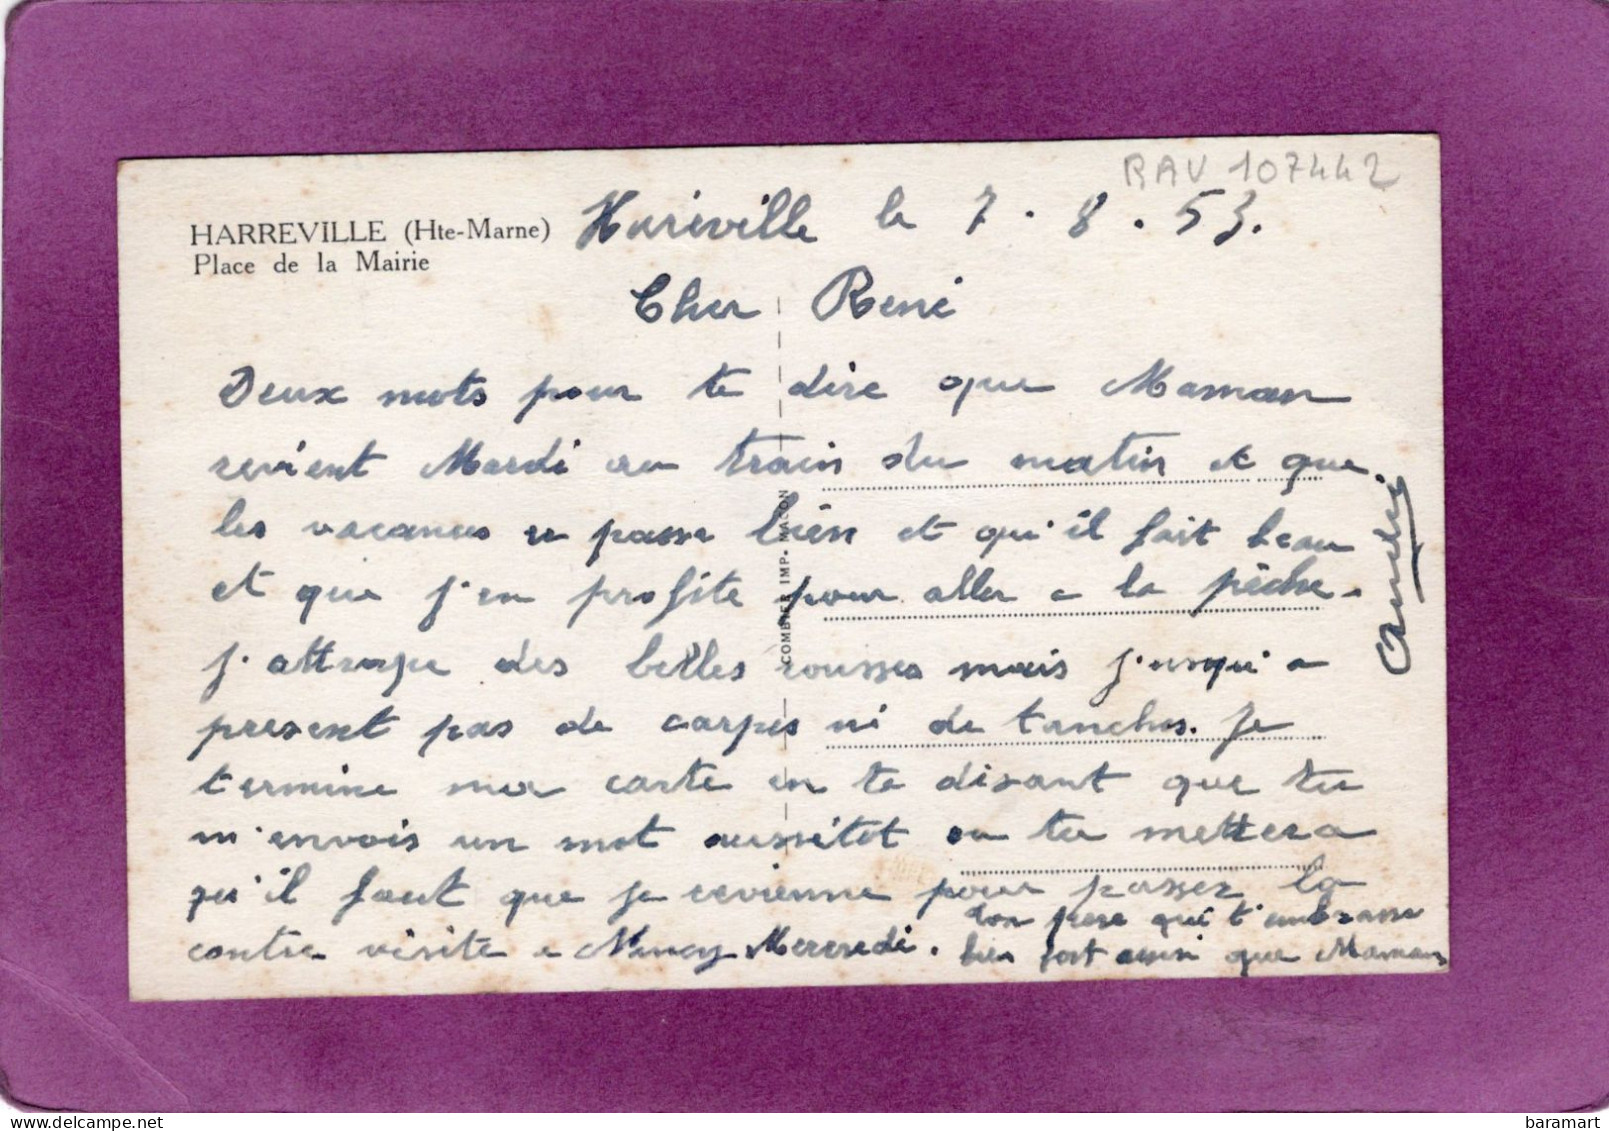 RAV 107442
HARREVILLE (Hte-Marne)
Place de la Mairie
Hareville le 7.8.53.
Cher René
Deux mots pour te dire que Maman
revient Mardi au train du matin et que
les vacances se passe bien et qu'il fait beau
et que j'en profite pour aller a la pêche.
j'attrape des belles rousses mais j'usqu'a
present pas de carpes ni de tanches. Je
termine ma carte en te disant que tu
m'envois un mot aussitot ou tu mettera
qu'il faut que je revienne pour passer la
contre visite a Nancy Mercredi.
Ton pere qui t'embrasse
bien fort ainsi que Maman
COMBIER IMP. MACON
baramart